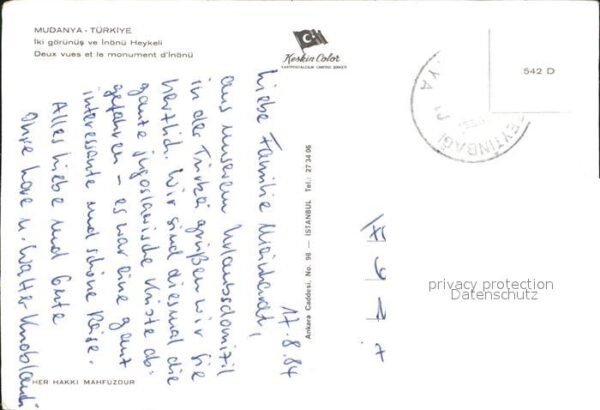 MUDANYA - TÜRKİYE
İki görünüş ve İnönü Heykeli
Deux vues et le monument d'İnönü
Keskin Color
KARTPOSTALCILIK LIMITED ŞİRKETİ
542 D
ZEYTİNBAĞI
Ankara Caddesi, No. 98 — İSTANBUL Tel.: 27 34 06
HER HAKKI MAHFUZDUR
17.8.84
Liebe Familie Meinhardt,
aus unserem Urlaubsdomizil
in der Türkei grüßen wir Sie
herzlich. Wir sind diesmal die
ganze jugoslawische Küste ab-
gefahren – es war eine ganz
interessante und schöne Reise.
Alles Liebe und Gute
Ihre u. Walter
privacy protection
Datenschutz